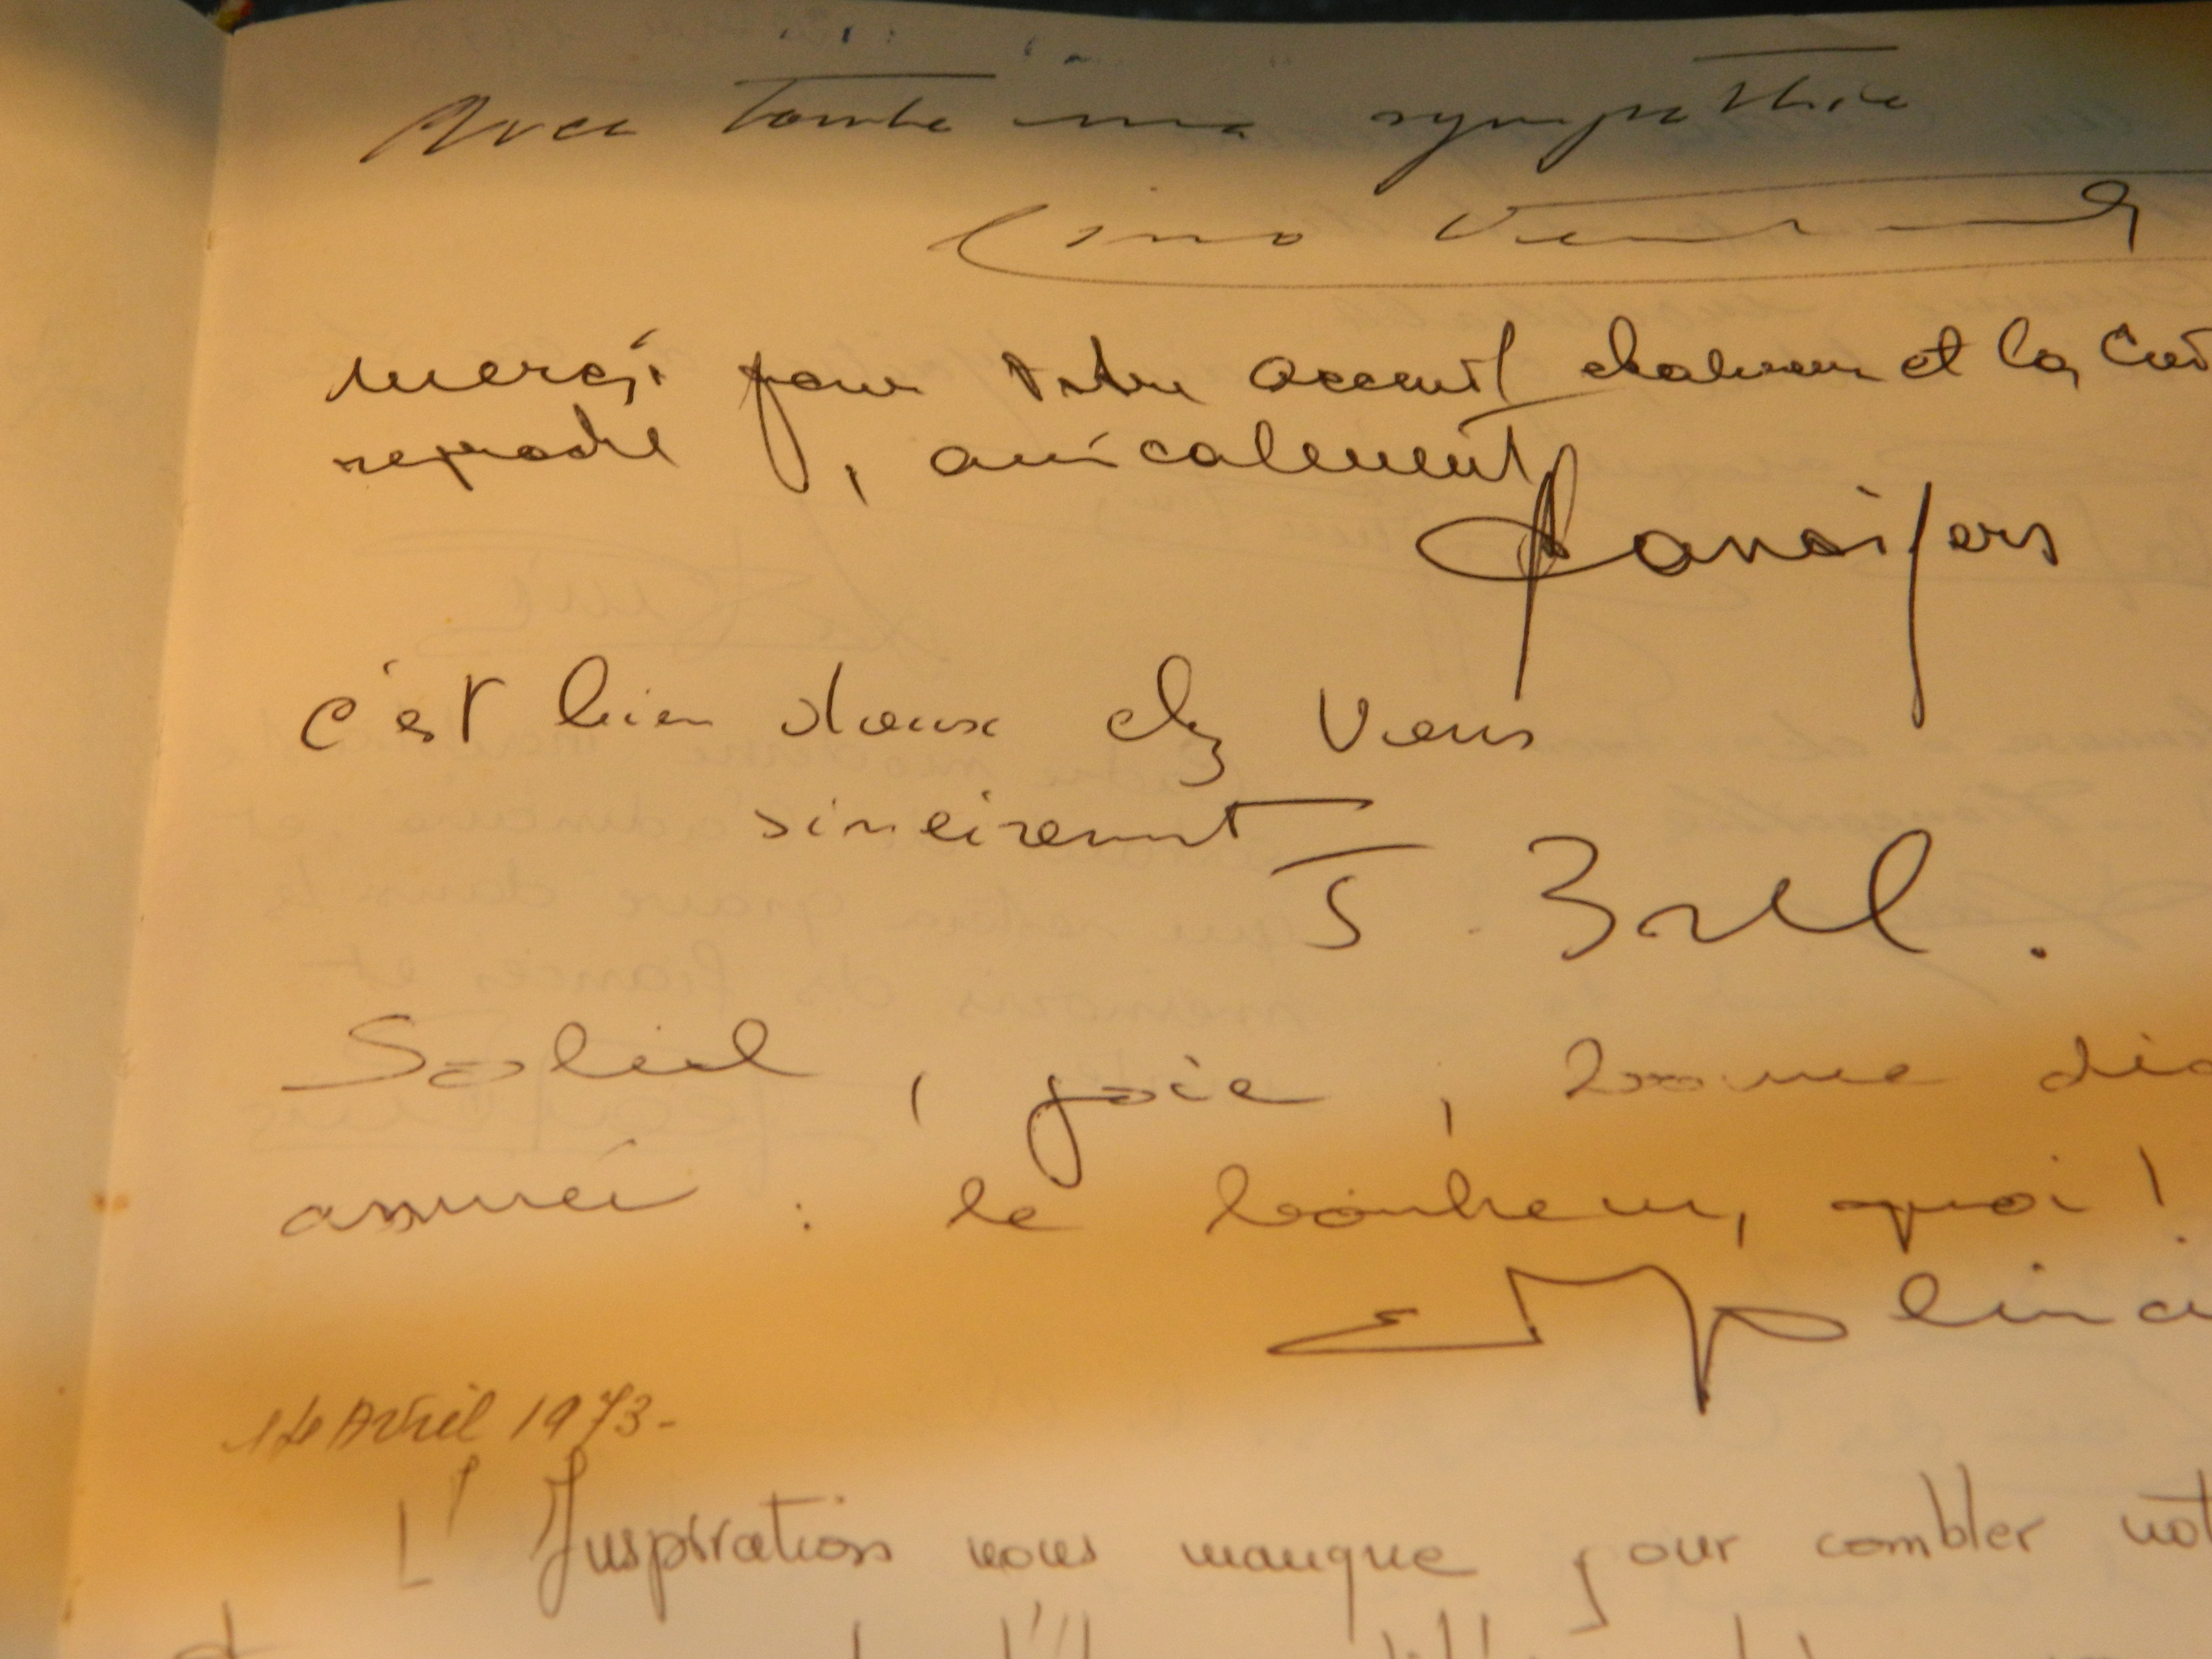 Avec toute ma sympathie
Lino Ventura
merci pour votre accueil chaleureux et la
reproche, amicalement
c'est bien doux chez vous
sincèrement
J. Brel.
Soleil, joie, bonne
assurée : le bonheur, quoi !
14 Avril 1973-
L'Inspiration nous manque pour combler